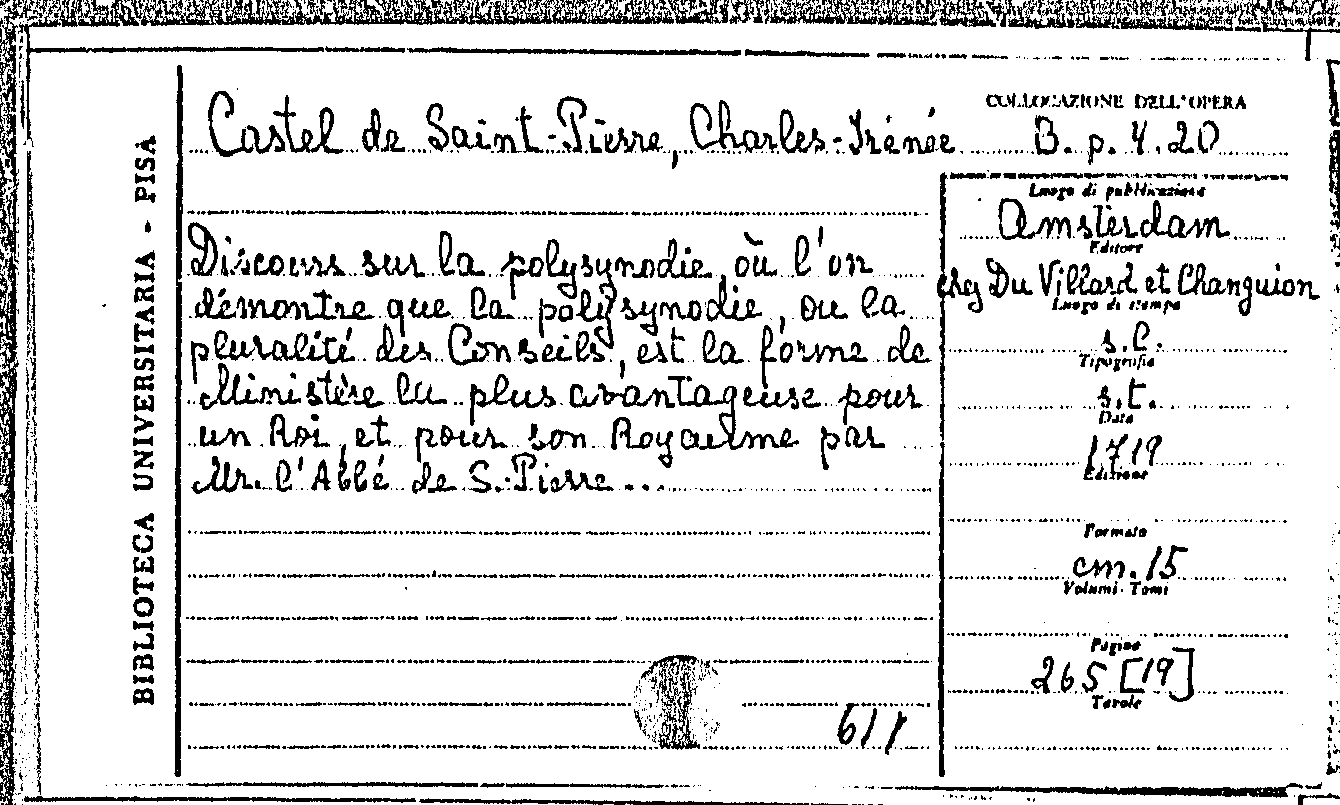 BIBLIOTECA UNIVERSITARIA - PISA
Castel de Saint-Pierre, Charles-Irénée
COLLOCAZIONE DELL'OPERA
B. p. 4. 20
Discours sur la polysynodie, où l'on
démontre que la polysynodie, ou la
pluralité des Conseils, est la forme de
Ministère la plus avantageuse pour
un Roi, et pour son Royaume par
Mr. l'Abbé de S.-Pierre...
611
Luogo di pubblicazione
Amsterdam
Editore
chez Du Villard et Changuion
Luogo di stampa
s.l.
Tipografia
s.t.
Data
1719
Edizione
Formato
cm. 15
Volumi - Tomi
Pagine
265 [19]
Tavole